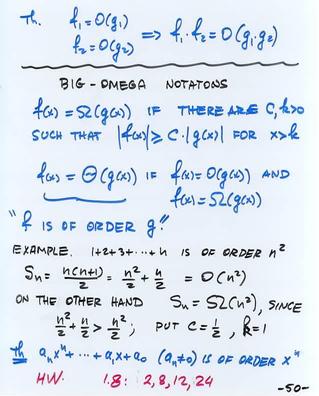 Th. f₁ = O(g₁)
f₂ = O(g₂) ⇒ f₁·f₂ = O(g₁·g₂)
BIG-OMEGA NOTATONS
f(x) = Ω(g(x)) IF THERE ARE C, k>0
SUCH THAT |f(x)| ≥ C·|g(x)| FOR x>k
f(x) = Θ(g(x)) IF f(x) = O(g(x)) AND
f(x) = Ω(g(x))
"f IS OF ORDER g."
EXAMPLE. 1+2+3+···+n IS OF ORDER n²
Sₙ = n(n+1)/2 = n²/2 + n/2 = O(n²)
ON THE OTHER HAND Sₙ = Ω(n²), SINCE
n²/2 + n/2 > n²/2; PUT C = 1/2, k=1
Th aₙxⁿ + ··· + a₁x + a₀ (aₙ≠0) IS OF ORDER xⁿ
HW. 1.8: 2, 8, 12, 24
-50-